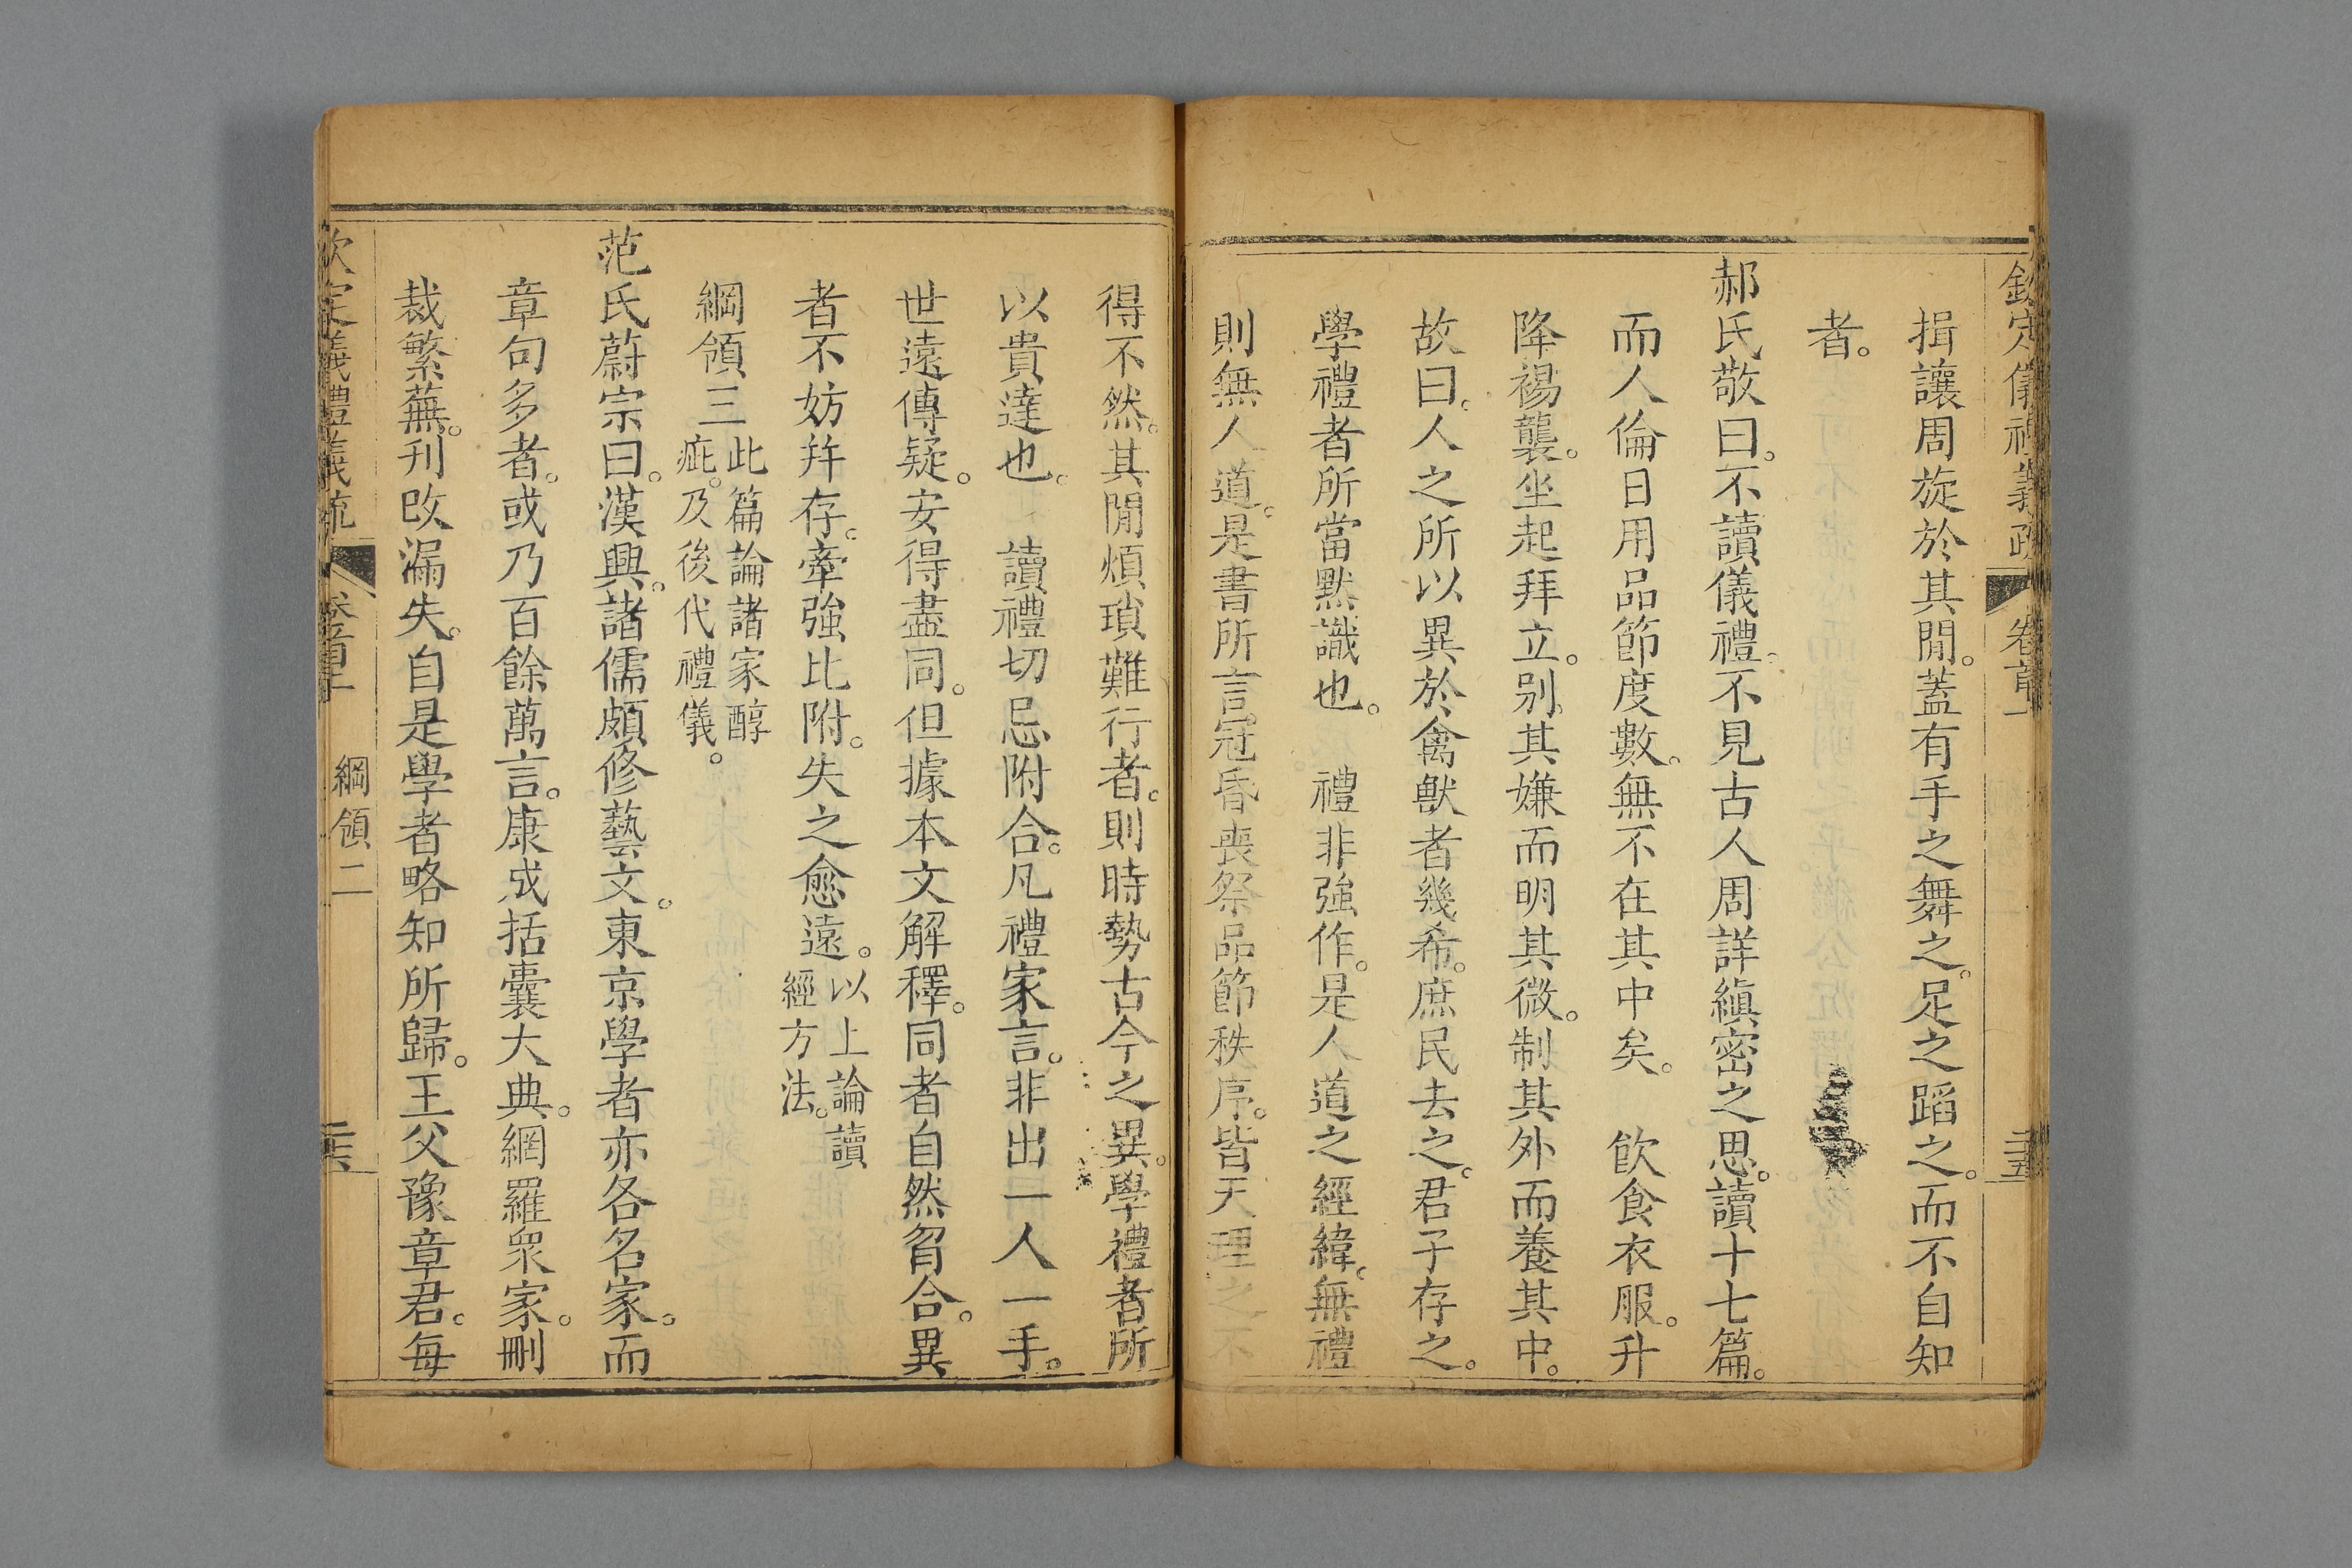 欽定儀禮義疏 卷首一 二十五
揖讓周旋於其閒。蓋有手之舞之。足之蹈之。而不自知
者。
郝氏敬曰。不讀儀禮。不見古人周詳縝密之思。讀十七篇。
而人倫日用品節度數。無不在其中矣。 飲食衣服。升
降裼襲。坐起拜立。别其嫌而明其微。制其外而養其中。
故曰。人之所以異於禽獸者幾希。庶民去之。君子存之。
學禮者所當黙識也。 禮非強作。是人道之經緯。無禮
則無人道。是書所言冠昏喪祭品節秩序。皆天理之不
得不然。其閒煩瑣難行者。則時勢古今之異。學禮者所
以貴達也。 讀禮切忌附合。凡禮家言。非出一人一手。
世遠傳疑。安得盡同。但據本文解釋。同者自然脗合。異
者不妨幷存。牽強比附。失之愈遠。以上論讀
經方法。
綱領三此篇論諸家醇
疵。及後代禮儀。
范氏蔚宗曰。漢興。諸儒頗修藝文。東京學者亦各名家。而
章句多者。或乃百餘萬言。康成括囊大典。網羅衆家。刪
裁繁蕪。刊改漏失。自是學者略知所歸。王父豫章君。每
欽定儀禮義疏 卷首上 綱領二 二十六